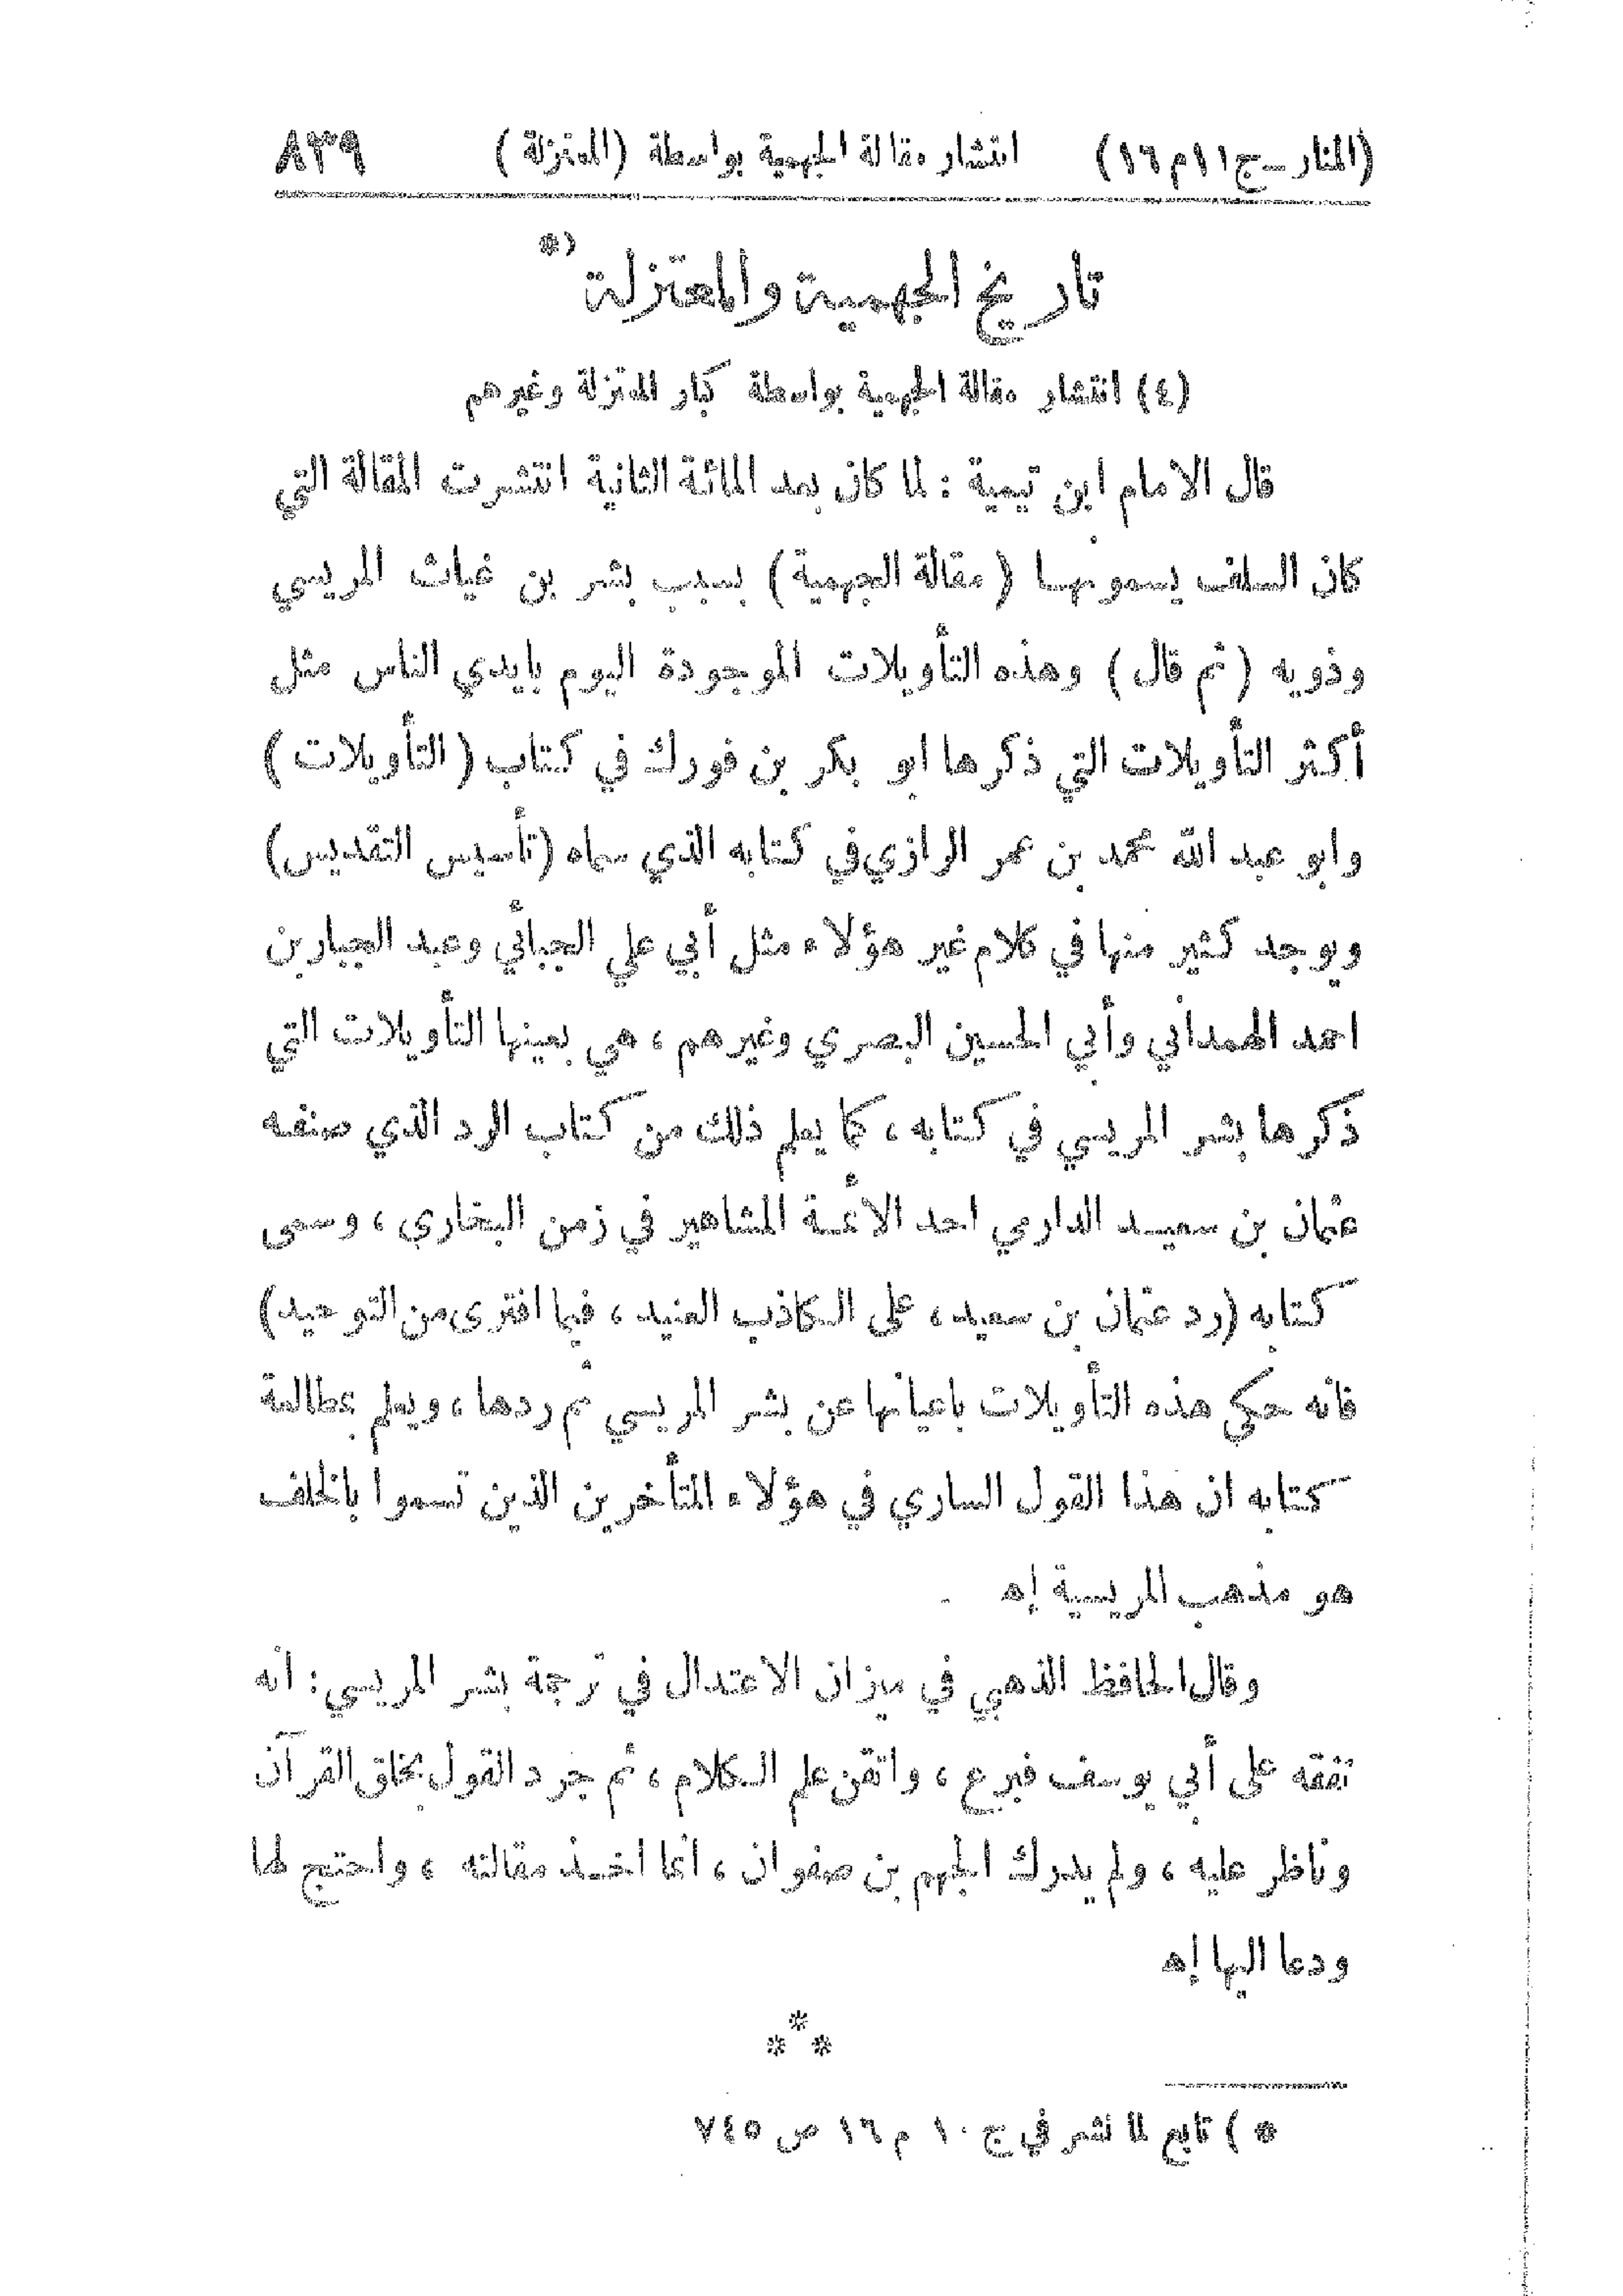 (المنار – ج ١١ م ١٦) انتشار مقالة الجهمية بواسطة (المعتزلة) ٨٣٩
تاريخ الجهمية والمعتزلة *)
(٤) انتشار مقالة الجهمية بواسطة كبار المعتزلة وغيرهم
قال الامام ابن تيمية : لما كان بعد المائة الثانية انتشرت المقالة التي
كان السلف يسمونها (مقالة الجهمية) بسبب بشر بن غياث المريسي
وذويه (ثم قال) وهذه التأويلات الموجودة اليوم بايدي الناس مثل
أكثر التأويلات التي ذكرها ابو بكر بن فورك في كتاب (التأويلات)
وابو عبد الله محمد بن عمر الرازي في كتابه الذي سماه (تأسيس التقديس)
ويوجد كثير منها في كلام غير هؤلاء مثل أبي علي الجبائي وعبد الجبار بن
احمد الهمداني وأبي الحسين البصري وغيرهم ، هي بعينها التأويلات التي
ذكرها بشر المريسي في كتابه ، كما يعلم ذلك من كتاب الرد الذي صنفه
عثمان بن سعيد الدارمي احد الأئمة المشاهير في زمن البخاري ، وسمى
كتابه (رد عثمان بن سعيد ، على الكاذب العنيد ، فيما افترى من التوحيد)
فانه حكى هذه التأويلات باعيانها عن بشر المريسي ثم ردها ، ويعلم بمطالعة
كتابه ان هذا القول الساري في هؤلاء المتأخرين الذين تسموا بالخلف
هو مذهب المريسية إه
وقال الحافظ الذهبي في ميزان الاعتدال في ترجمة بشر المريسي : انه
تفقه على أبي يوسف فبرع ، واتقن علم الكلام ، ثم جرد القول بخلق القرآن
وناظر عليه ، ولم يدرك الجهم بن صفوان ، انما اخذ مقالته ، واحتج لها
ودعا اليها إه
* * *
* ) تابع لما نشر في ج ١٠ م ١٦ ص ٧٤٥